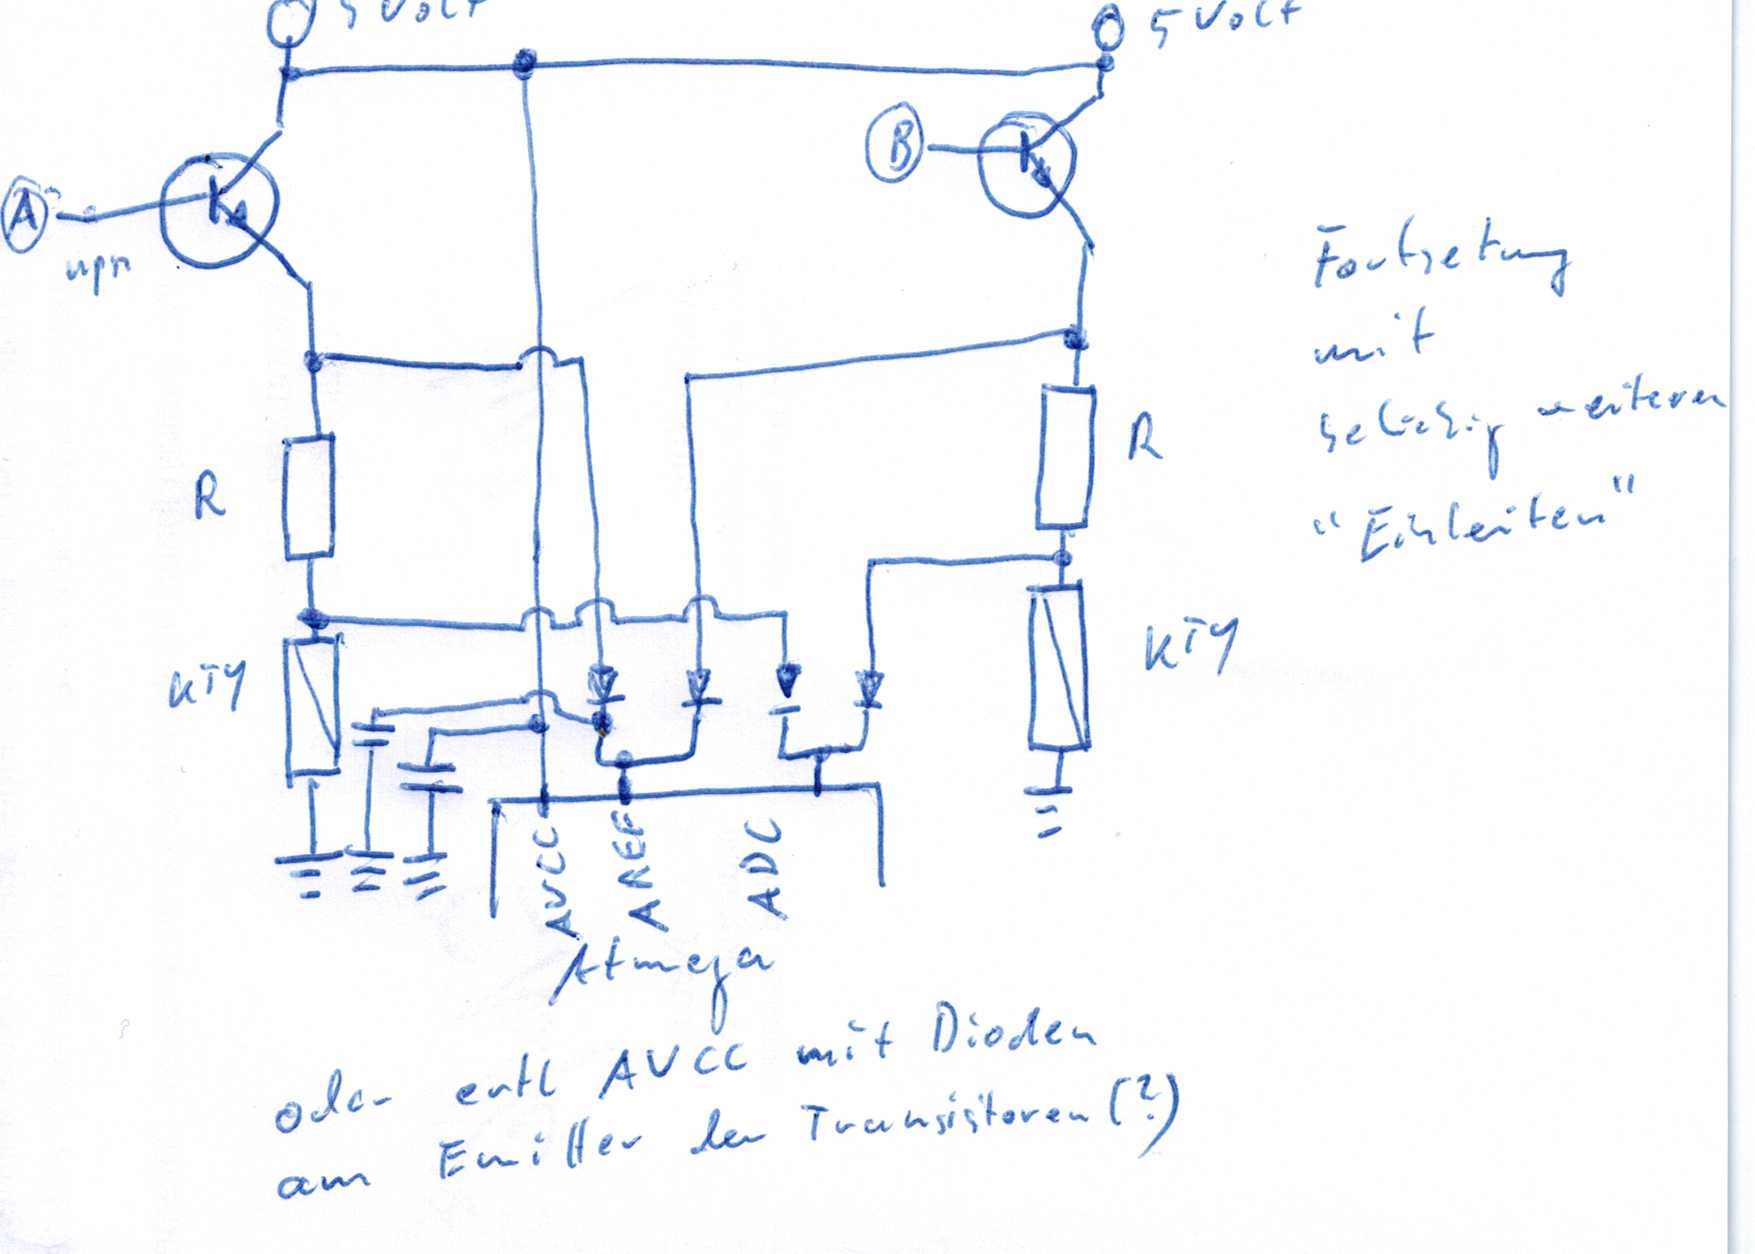 5 Volt
5 Volt
A
B
npn
Fortsetung
mit
beliebig weiteren
"Einleiten"
R
R
KTY
KTY
AVCC
AREF
ADC
Atmega
oder evtl AVCC mit Dioden
am Emitter der Transistoren (?)